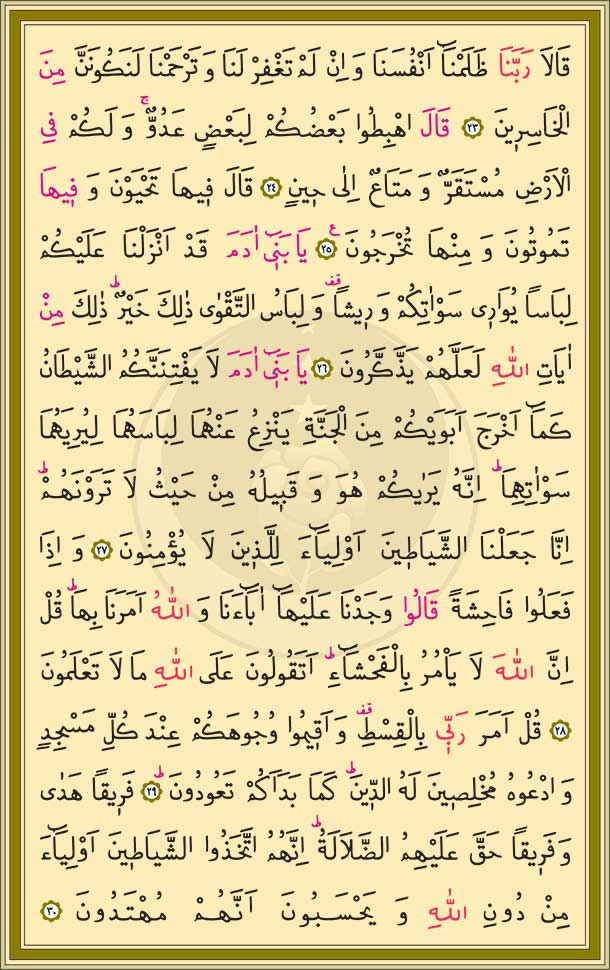 قَالَا رَبَّنَا ظَلَمْنَٓا اَنْفُسَنَا وَاِنْ لَمْ تَغْفِرْ لَنَا وَتَرْحَمْنَا لَنَكُونَنَّ مِنَ
الْخَاسِر۪ينَ ﴿٢٣﴾ قَالَ اهْبِطُوا بَعْضُكُمْ لِبَعْضٍ عَدُوٌّۚ وَلَكُمْ فِي
الْاَرْضِ مُسْتَقَرٌّ وَمَتَاعٌ اِلٰى ح۪ينٍ ﴿٢٤﴾ قَالَ ف۪يهَا تَحْيَوْنَ وَف۪يهَا
تَمُوتُونَ وَمِنْهَا تُخْرَجُونَ۟ ﴿٢٥﴾ يَا بَن۪ٓي اٰدَمَ قَدْ اَنْزَلْنَا عَلَيْكُمْ
لِبَاساً يُوَار۪ي سَوْاٰتِكُمْ وَر۪يشاًۜ وَلِبَاسُ التَّقْوٰى ذٰلِكَ خَيْرٌۜ ذٰلِكَ مِنْ
اٰيَاتِ اللّٰهِ لَعَلَّهُمْ يَذَّكَّرُونَ ﴿٢٦﴾ يَا بَن۪ٓي اٰدَمَ لَا يَفْتِنَنَّكُمُ الشَّيْطَانُ
كَمَٓا اَخْرَجَ اَبَوَيْكُمْ مِنَ الْجَنَّةِ يَنْزِعُ عَنْهُمَا لِبَاسَهُمَا لِيُرِيَهُمَا
سَوْاٰتِهِمَاۜ اِنَّهُ يَرٰيكُمْ هُوَ وَقَب۪يلُهُ مِنْ حَيْثُ لَا تَرَوْنَهُمْۜ
اِنَّا جَعَلْنَا الشَّيَاط۪ينَ اَوْلِيَٓاءَ لِلَّذ۪ينَ لَا يُؤْمِنُونَ ﴿٢٧﴾ وَاِذَا
فَعَلُوا فَاحِشَةً قَالُوا وَجَدْنَا عَلَيْهَٓا اٰبَٓاءَنَا وَاللّٰهُ اَمَرَنَا بِهَاۜ قُلْ
اِنَّ اللّٰهَ لَا يَأْمُرُ بِالْفَحْشَٓاءِۜ اَتَقُولُونَ عَلَى اللّٰهِ مَا لَا تَعْلَمُونَ
﴿٢٨﴾ قُلْ اَمَرَ رَبّ۪ي بِالْقِسْطِ۠ وَاَق۪يمُوا وُجُوهَكُمْ عِنْدَ كُلِّ مَسْجِدٍ
وَادْعُوهُ مُخْلِص۪ينَ لَهُ الدّ۪ينَۜ كَمَا بَدَاَكُمْ تَعُودُونَۜ ﴿٢٩﴾ فَر۪يقاً هَدٰى
وَفَر۪يقاً حَقَّ عَلَيْهِمُ الضَّلَالَةُۜ اِنَّهُمُ اتَّخَذُوا الشَّيَاط۪ينَ اَوْلِيَٓاءَ
مِنْ دُونِ اللّٰهِ وَيَحْسَبُونَ اَنَّهُمْ مُهْتَدُونَ ﴿٣٠﴾